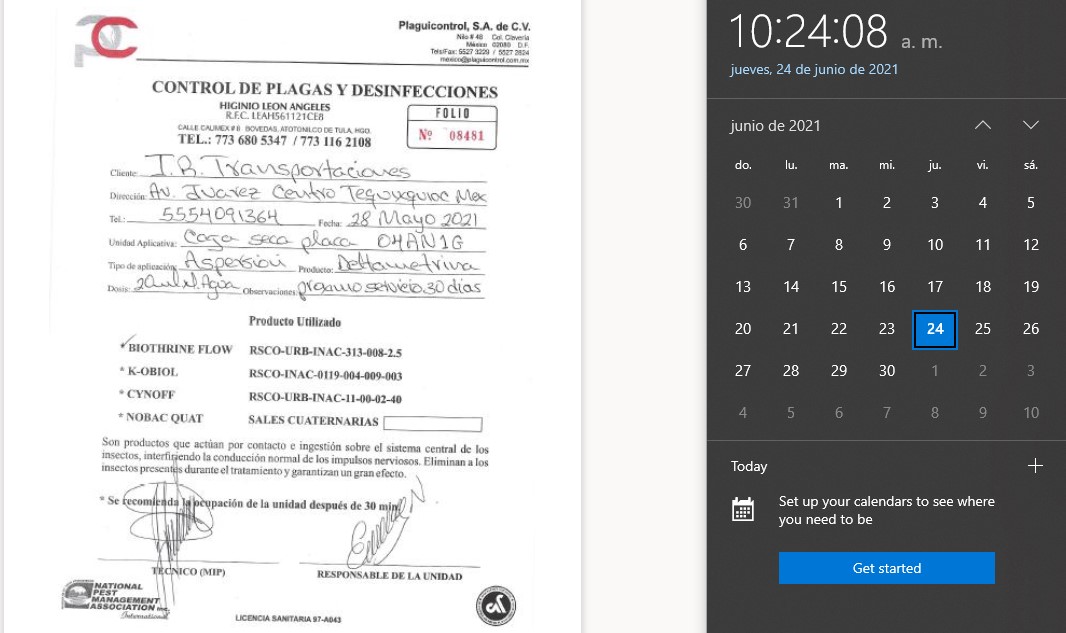 Plaguicontrol, S.A. de C.V.
Nilo # 48 Col. Clavería
México 02080 D.F.
Tels/Fax: 5527 3229 / 5527 2824
mexico@plaguicontrol.com.mx
CONTROL DE PLAGAS Y DESINFECCIONES
HIGINIO LEON ANGELES
R.F.C. LEAH561121CE8
CALLE CALIMEX # 8 BOVEDAS, ATOTONILCO DE TULA, HGO.
TEL.: 773 680 5347 / 773 116 2108
FOLIO
Nº 08481
Cliente: I.B. Transportaciones
Dirección: Av. Juarez Centro Tequixquiac Mex
Tel.: 5554091364 Fecha: 28 Mayo 2021
Unidad Aplicativa: Caja seca placa 04AN1G
Tipo de aplicación: Aspersion Producto: Deltametrina
Dosis: 20ml Agua Observaciones: proximo servicio 30 dias
Producto Utilizado
* BIOTHRINE FLOW RSCO-URB-INAC-313-008-2.5
* K-OBIOL RSCO-INAC-0119-004-009-003
* CYNOFF RSCO-URB-INAC-11-00-02-40
* NOBAC QUAT SALES CUATERNARIAS
Son productos que actúan por contacto e ingestión sobre el sistema central de los
insectos, interfiriendo la conducción normal de los impulsos nerviosos. Eliminan a los
insectos presentes durante el tratamiento y garantizan un gran efecto.
* Se recomienda la ocupación de la unidad después de 30 min.
TÉCNICO (MIP)
RESPONSABLE DE LA UNIDAD
NATIONAL
PEST
MANAGEMENT
ASSOCIATION Inc.
International
LICENCIA SANITARIA 97-A043
10:24:08 a. m.
jueves, 24 de junio de 2021
junio de 2021
do. lu. ma. mi. ju. vi. sá.
30 31 1 2 3 4 5
6 7 8 9 10 11 12
13 14 15 16 17 18 19
20 21 22 23 24 25 26
27 28 29 30 1 2 3
4 5 6 7 8 9 10
Today
Set up your calendars to see where
you need to be
Get started